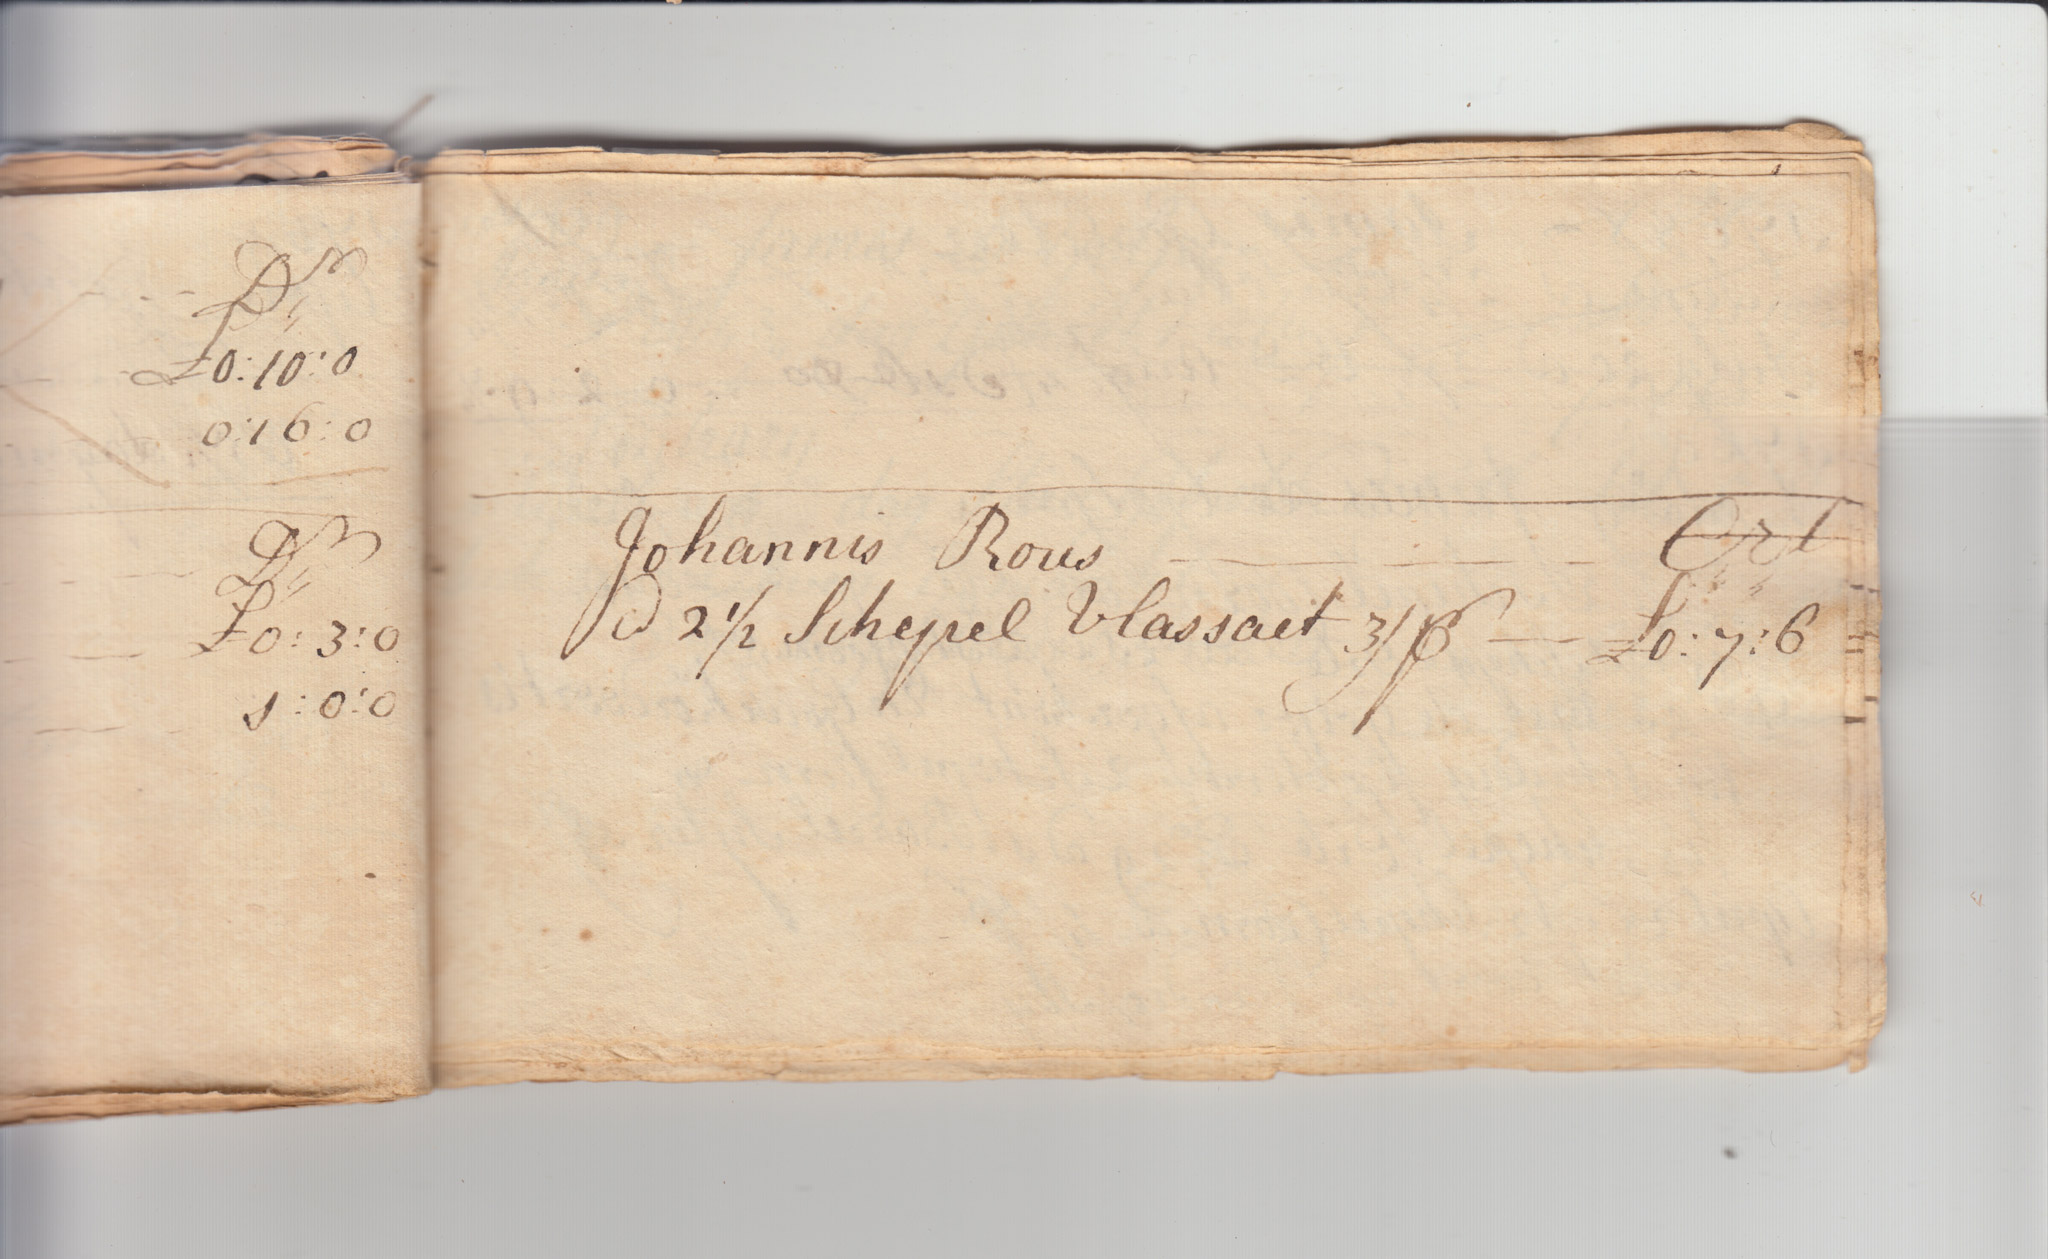 Dr
£0:10:0
0:16:0
Dr
£0:3:0
1:0:0
Johannis Rous Crt
2½ Schepel Vlassaet 3/ £0:7:6